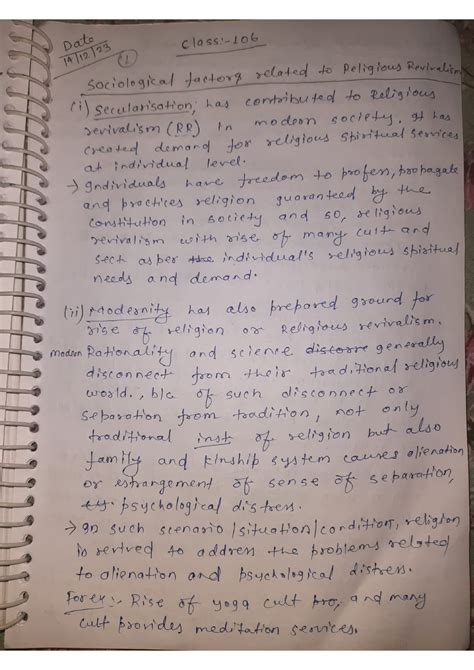 Date
14/12/23
Class:-106
1
Sociological factors related to Religious Revivalism
(i) Secularisation; has contributed to Religious
revivalism (RR) in modern society. It has
created demand for religious spiritual services
at individual level.
→ Individuals have freedom to profess, propagate
and practices religion guaranteed by the
constitution in society and so, religious
revivalism with rise of many cult and
sect as per the individual's religious spiritual
needs and demand.
(ii) Modernity has also prepared ground for
rise of religion or Religious revivalism.
modern Rationality and science generally
disconnect from their traditional religious
world., b/c of such disconnect or
separation from tradition, not only
traditional inst of religion but also
family and kinship system causes alienation
or estrangement of sense of separation,
psychological distress.
→ In such scenario/situation/condition, religion
is revived to address the problems related
to alienation and psychological distress.
Forex:- Rise of yoga cult pro, and many
cult provides meditation services.